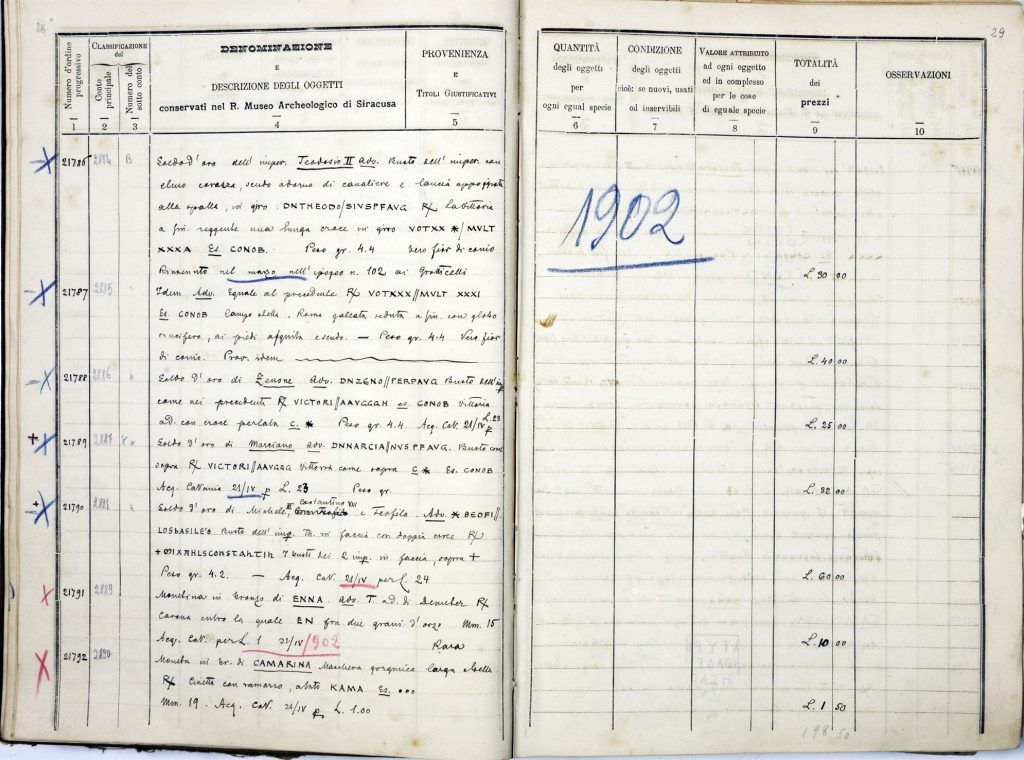 28
Numero d'ordine progressivo
CLASSIFICAZIONE del
Conto principale
Numero del sotto conto
DENOMINAZIONE
E
DESCRIZIONE DEGLI OGGETTI
conservati nel R. Museo Archeologico di Siracusa
PROVENIENZA
E
TITOLI GIUSTIFICATIVI
1 2 3 4 5
21786 2884 B Soldo d'oro dell'imper. Teodosio II Adv. Busto dell'imper. con
elmo corazza, scudo adorno di cavaliere e lancia appoggiata
alla spalla, in giro DNTHEODO/SIVSPFAVG R/ La Vittoria
a sin. reggente una lunga croce in giro VOTXX * / MVLT
XXXA Es. CONOB. Peso gr. 4.4 Vero fior di conio
Rinvenuto nel marzo nell'ipogeo n. 102 ai Grotticelli
21787 2885 " Idem Adv. Eguale al precedente R/ VOTXXX//MVLT XXXI
Es. CONOB Campo stella. Roma galeata seduta a sin. con globo
crucifero, ai piedi scudo. — Peso gr. 4.4 Vero fior
di conio. Prov. idem
21788 2886 Soldo d'oro di Zenone Adv. DNZENO//PERPAVG Busto dell'imp.
come nei precedenti R/ VICTORI//AAVGGGH es CONOB Vittoria
ad. con croce perlata C. * Peso gr. 4.4 Acq. Cat. 21/IV p L. 23
21789 2887 Soldo d'oro di Marciano adv. DNNARCIA//NVSPFAVG. Busto come
sopra R/ VICTORI//AAVGGG Vittoria come sopra C * Es. CONOB
Acq. Catania 21/IV p L. 23 Peso gr.
21790 2888 Soldo d'oro di Michele II, Costantino VIII e Teofilo. Adv. * ΘEOFI//
LOSBASILE'Θ Busto dell'imp. Th. in faccia con doppia croce R/
+MIXAHLSCONSTANTIN I busti dei 2 imp. in faccia, sopra +
Peso gr. 4.2. — Acq. Cat. 21/IV per L. 24
21791 2889 Monetina in bronzo di ENNA. adv. T. ad. di Demeter R/
Corona entro la quale EN fra due grani d'orzo Mm. 15
Acq. Cat. per L. 1 21/IV/902 Rara
21792 2890 Moneta in br. di CAMARINA Maschera gorgonica larga
R/ Civetta con ramarro, a KAMA Es. •••
Mm. 19. Acq. Cat. 21/IV p L. 1.00
29
QUANTITÀ
degli oggetti
per
ogni egual specie
CONDIZIONE
degli oggetti
cioè: se nuovi, usati
od inservibili
VALORE ATTRIBUITO
ad ogni oggetto
ed in complesso
per le cose
di eguale specie
TOTALITÀ
dei
prezzi
OSSERVAZIONI
6 7 8 9 10
1902
L. 30 00
L. 40 00
L. 25 00
L. 32 00
L. 60 00
L. 10 00
L. 1 50
198 50